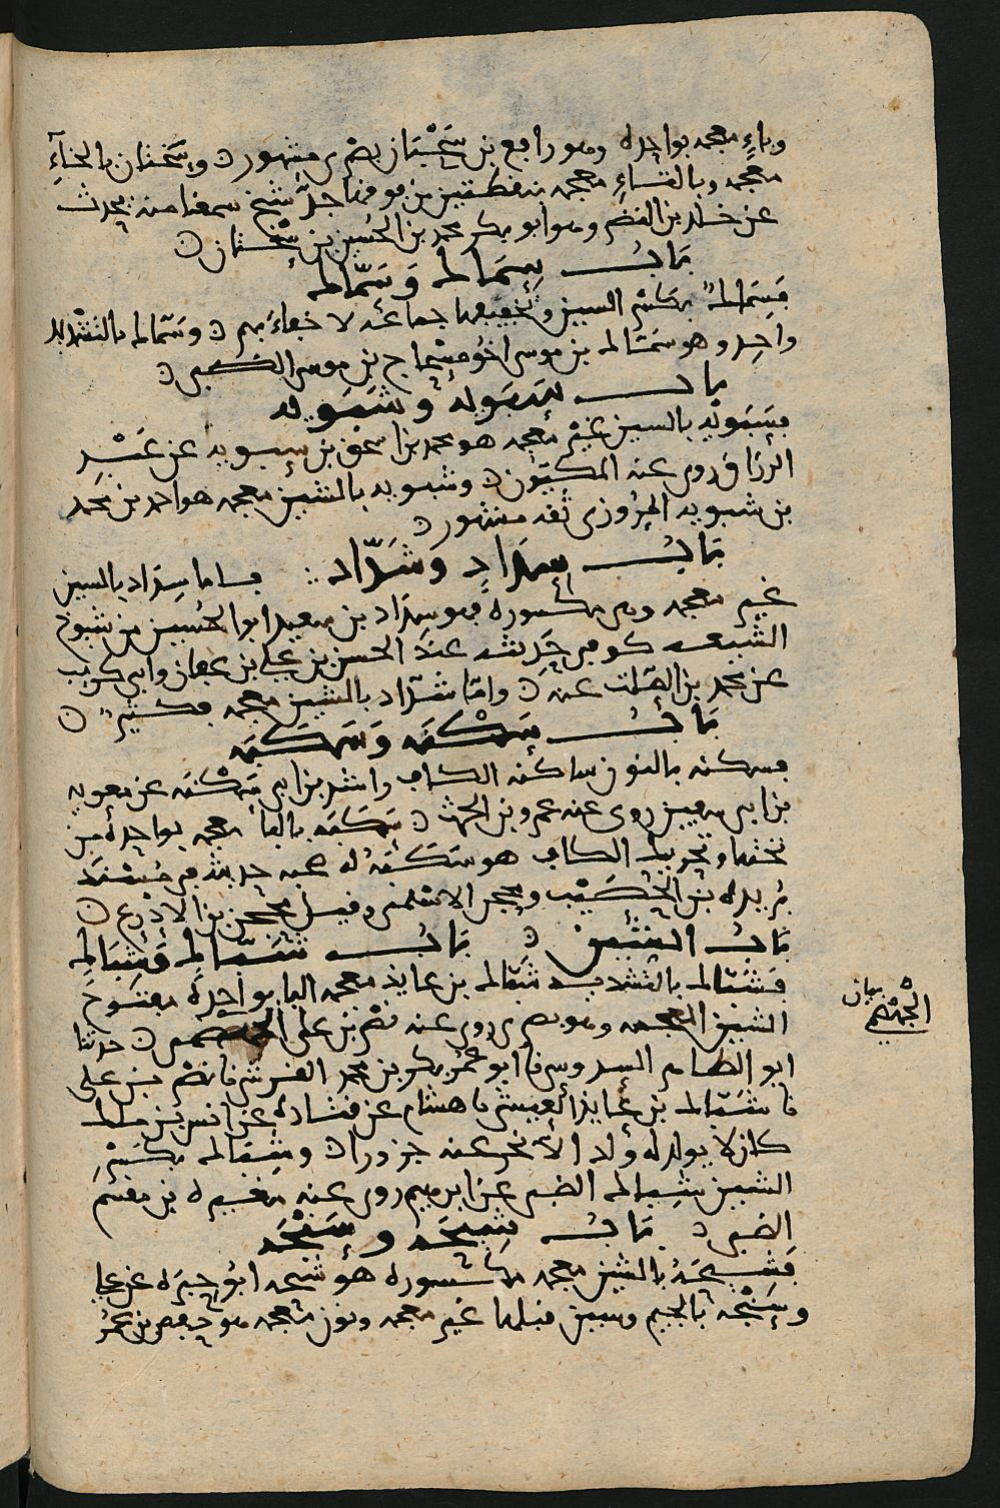 وباءٍ معجمه بواحده وهو رافع بن سَخْبَان بصْرى مشهور وسَختان بالخاءِ
معجمه وبالتاءِ معجمه بنقطتين من فوقها جدّ شيخ سمعنا منه يحدث
عن خلد بن النضر وهو ابو بكر محمد بن الحُسين بن سَخْتان
بَابُ سِمَاك وَسَمّاك
فسِمَاك بكسْر السين وتخفيفها جماعَه لا خفاءَ بهم وسَمّاك بالتشْديد
واحِد وهو سَمّاك بن موسى اخُو مِسْحاج بن موسى الضبى
باب سَبَوَيْه وشَبَوَيه
فسَبَوَيْه بالسين غيْر معجمه هو محمد بن اسحق بن سبويه عن عَبْد
الرزاق روى عنه المكيّون وشبويه بالشين معجمه هو احمد بن محمد
بن شبويه المرْوزى ثقه مشهور
بَابُ سِدَادٍ وَشَدّاد فاما سِدَاد بالسين
غير معجمه وهى مكسوره فهو سِدَاد بن سعيد ابو الحُسين من شيوخ
الشيعه كوفى حَدِيثه عند الحسن بن على بن عفان وابى كريب
عن محمد بن الصَّلت عنه وامّا شدّاد بالشين معجمه فكثير
بَابُ سَكْنَه وَسَكَبَه
فسكنه بالنون ساكنه الكاف راشد بن ابى سَكْنَه عن معويه
بن ابى سفيين روى عنه عمرو بن الحرث سَكَبَه بالبا معجمه بواحِدة من
تحتها وتحريك الكاف هو سَكَبَهُ له صحبه حديثه فى مُسْنَد
بُريده بن الحُصَيْب ومحجن الاسْلمى وقيل محجن بن الادْرع
بَابُ الشين بَابُ شَمّاكٍ وَشِبَاكٍ
فَشَبّاك بالتشديد شَبّاك بن عايذ معجمه البا بواحِدة مفتوح
الشين المعجمه وهو بصرى روى عنه نصْر بن على الجهضمى حدثنا
ابو الطاهر السدوسى نا ابو عُمَر بكر بن محمد القرشى نا نصْر بن على
نا شَبّاك بن عايذ العيشى نا هشام عن قتادة عن انس بن ملك
كان لا يولد له ولد الا نحر عنه جزورا وشِبَاك بكسْرِ
الشين شِباك الضبى عن ابرهيم روى عنه مغيره بن مقسَم
الضبى بَابُ شِيحَه وسَنْجَه
فَشِيحَهُ بالشين معجمه مكسوره هو شيحه ابو حِبَرَه عن على
وسَنْجه بالجيم وسين قبلها غير معجمه ونون معجمه هو حفص بن عُمَر
بيان
الجَهْضمى